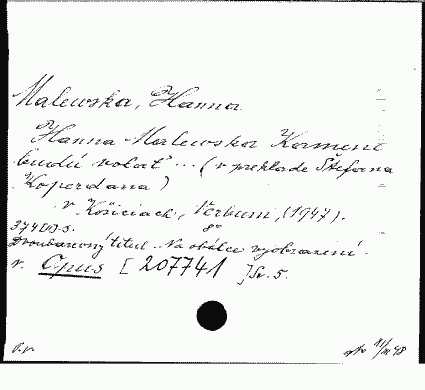 Malewska, Hanna
Hanna Malewska Kamene
budú volať ... (v preklade Štefana
Koperdana)
v Košiciach, Verbum, (1947).
374(I)s. 8°
Dvoubarevný titul. Na obálce vyobrazení.
v. Opus [207741] Sv. 5.
48